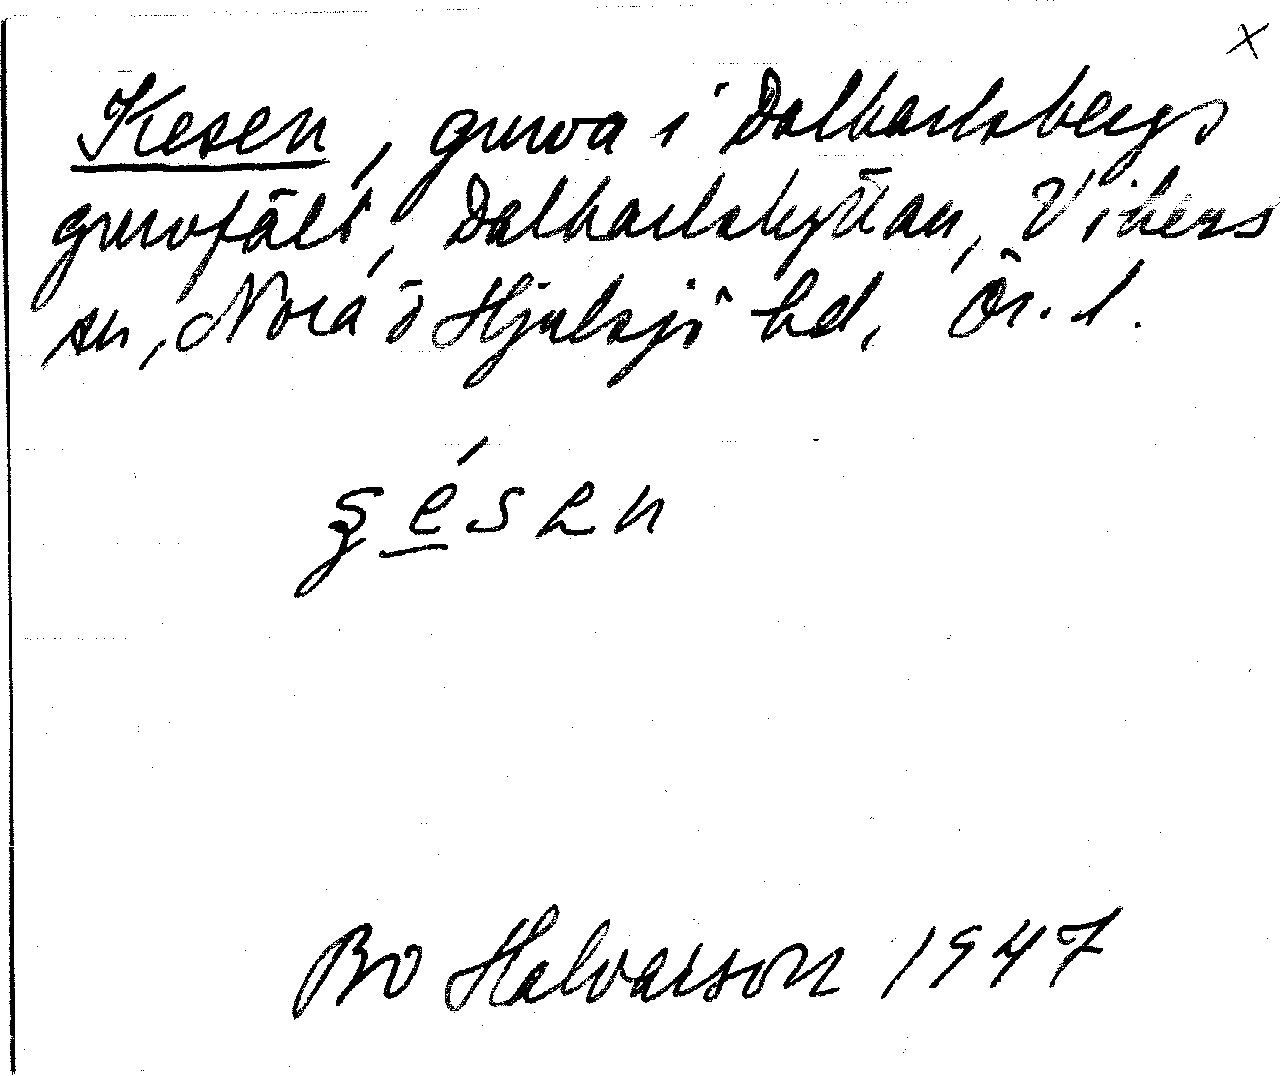 x
Kesen, gruva i Dalkarlsbergs
gruvfält, Dalkarlshyttan, Vikers
sn, Nora o Hjulsjö hd, Ör. l.
ésen
Bo Halvarson 1947